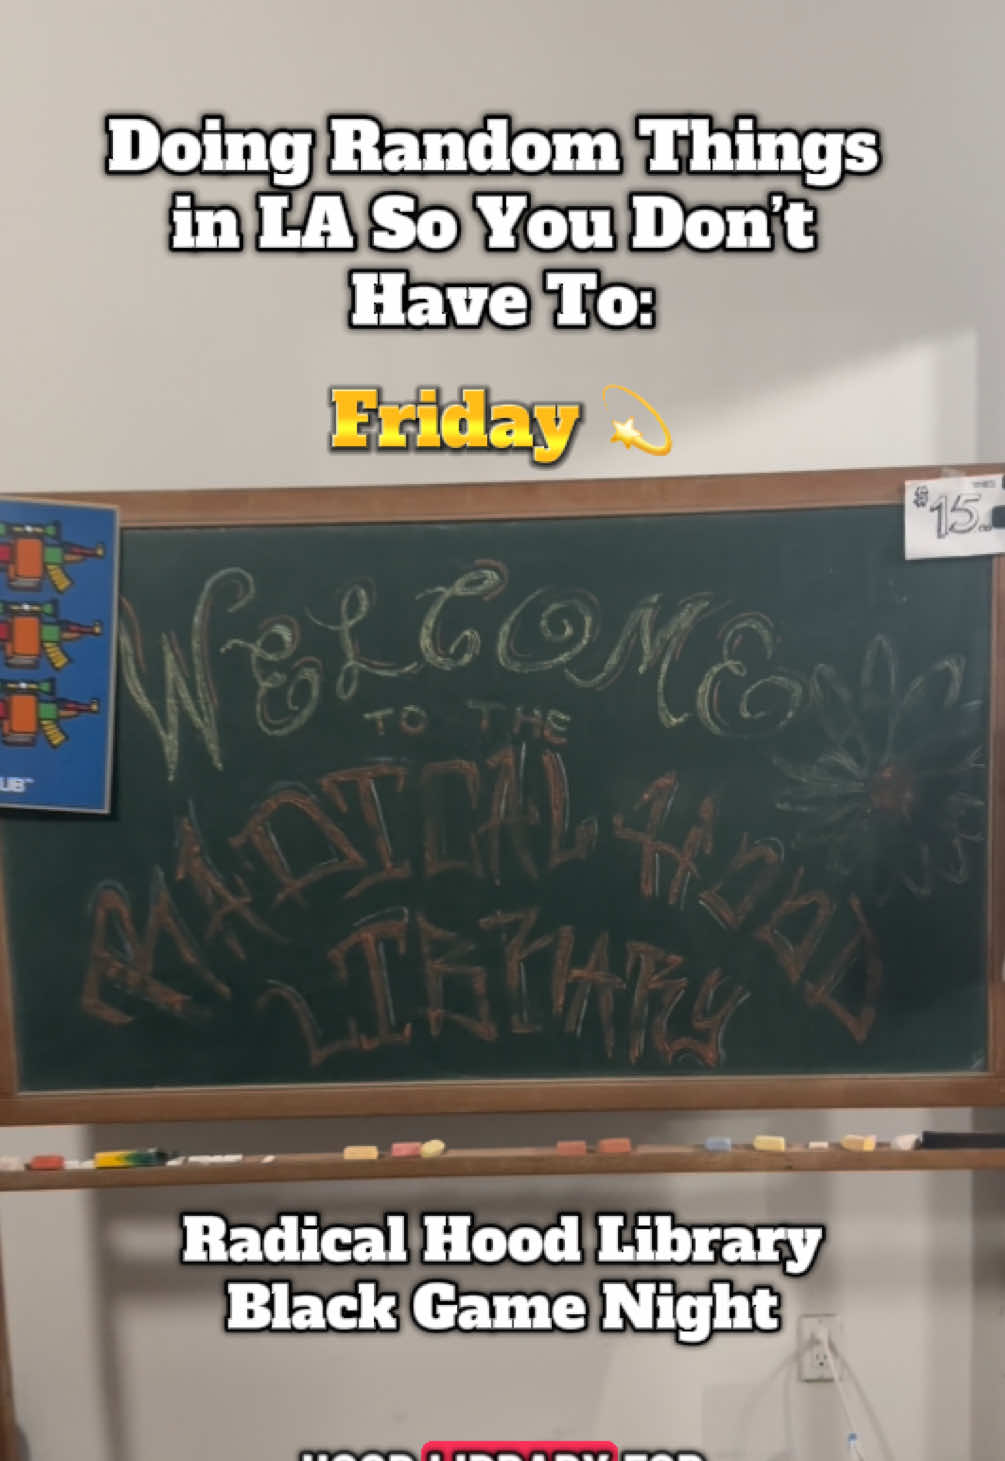 Doing Random Things
in LA So You Don't
Have To:
Friday 💫
$15.
WELCOME
TO THE
RADICAL HOOD
LIBRARY
UB™
Radical Hood Library
Black Game Night
HOOD LIBRARY FOR